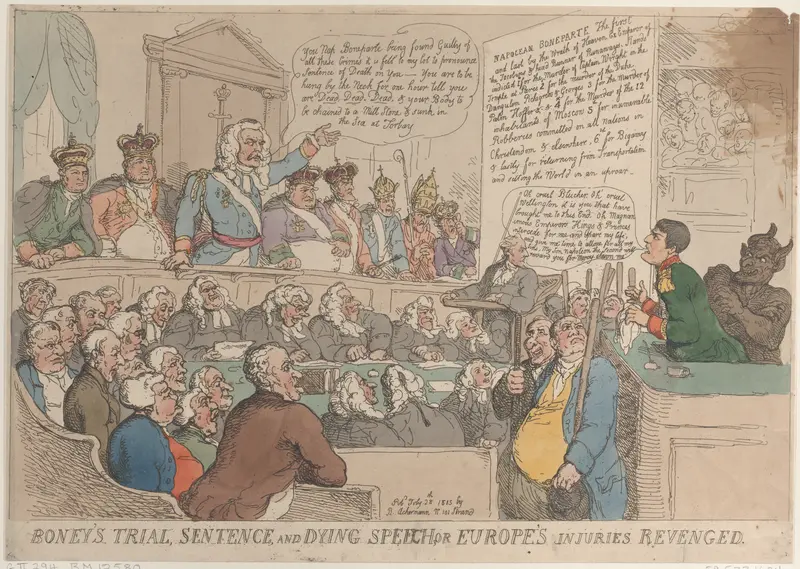 You Nap Boneparte being found Guilty of
all these Crimes it is fell to my lot to pronounce
Sentence of Death on You — You are to be
hung by the Neck for one hour till you
are Dead, Dead, Dead, & your Body to
be chained to a Mill Stone & sunk in
the Sea at Torbay
NAPOLEAN BONEPARTE The first
and last by the Wrath of Heaven Ex Emperor of
the Jacobins & head Runner of Runaways, Stands
indicted for the Murder of Captain Wright in the
Temple at Paris 2 for the murder of the Duke
Danguilon Pichegrew & Georges 3 for the Murder of
Palm Hoffer &c & 4 for the Murder of the 12
inhabitants of Moscow 5 for innumerable
Robberies committed on all Nations in
Christendom & elsewhere, 6 for Bigamy
& lastly for returning from Transportation
and setting the World in an uproar —
Oh cruel Blucher, Oh! cruel
Wellington it is you that have
brought me to this End. Oh Magnan
imous Emperors Kings & Princes
intercede for me and spare my life,
and give me time to attone for all my
Sins, my Son Napolean the Second will
reward you for Mercy shewn me
Pub July 28th 1815 by
R. Ackermann No 101 Strand
BONEY'S TRIAL, SENTENCE, AND DYING SPEECH, OR EUROPE'S INJURIES REVENGED.
BM 12580